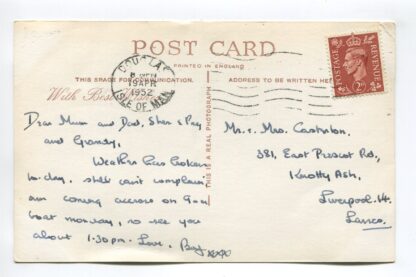 POST CARD
PRINTED IN ENGLAND
THIS SPACE FOR COMMUNICATION.
ADDRESS TO BE WRITTEN HERE
With Best
DOUGLAS
19 APR
1952
ISLE OF MAN
POSTAGE
REVENUE
THIS IS A REAL PHOTOGRAPH
Dear Mum and Dad,
and Granny,
Weather has broken
to-day, still can't complain,
am coming across on 9 am
boat monday, so see you
about 1-30 pm. Love,
xxxx
Mr & Mrs.
381, East Prescot Rd.,
Knotty Ash,
Liverpool. 14.
Lancs.